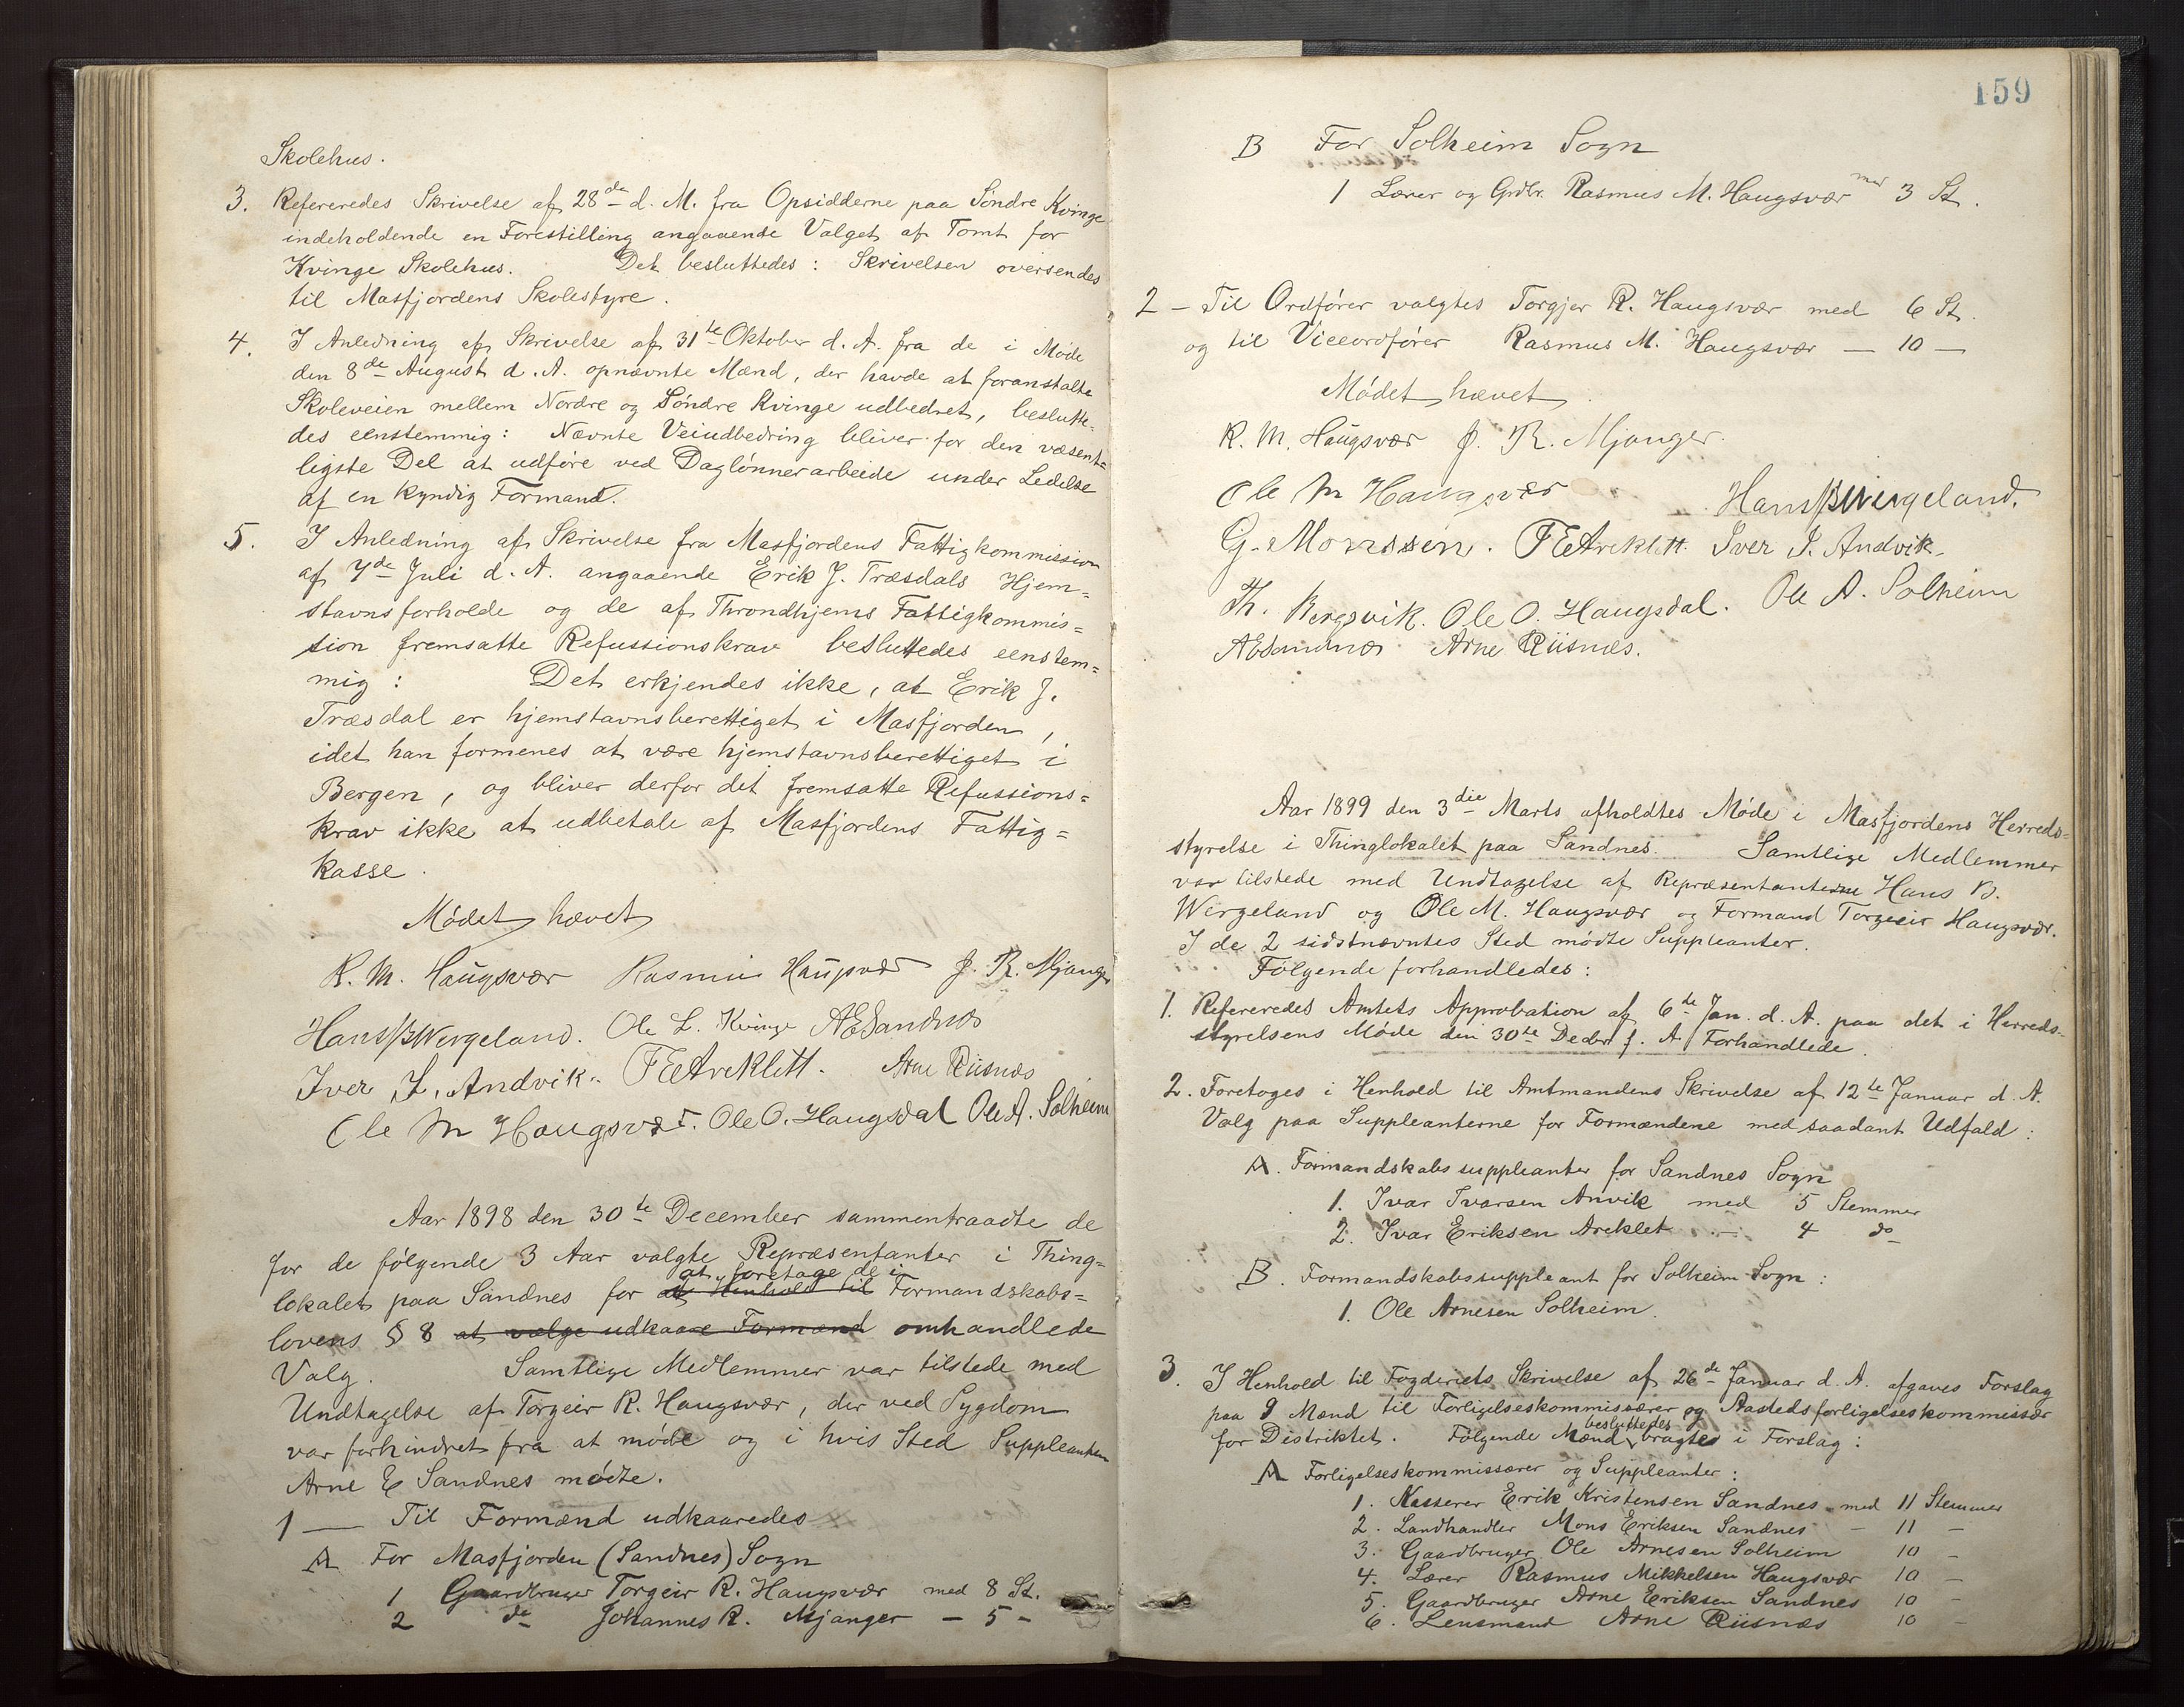 Skolehus.
3. Refereredes Skrivelse af 28de d. M. fra Opsidderne paa Söndre Kvinge
indeholdende en Forestilling angaaende Valget af Tomt for
Kvinge Skolehus. Det besluttedes: Skrivelsen oversendes
til Masfjordens Skolestyre.
4. I Anledning af Skrivelse af 31te Oktober d. A. fra de i Møde
den 8de August d. A. opnævnte Mænd, der havde at foranstalte
Skoleveien mellem Nordre og Söndre Kvinge udbedret, beslutte-
des eenstemmig: Nævnte Veiudbedring bliver for den væsent=
ligste Del at udføre ved Daglönnerarbeide under Ledelse
af en kyndig Formand.
5. I Anledning af Skrivelse fra Masfjordens Fattigkommission
af 7de Juli d. A. angaaende Erik J. Træsdals Hjem=
stavnsforholde og de af Throndhjems Fattigkommis=
sion fremsatte Refussionskrav besluttedes eenstem=
mig: Det erkjendes ikke, at Erik J.
Træsdal er hjemstavnsberettiget i Masfjorden,
idet han formenes at være hjemstavnsberettiget i
Bergen, og bliver derfor det fremsatte Refussions=
krav ikke at udbetale af Masfjordens Fattig=
kasse.
Mødet hævet
R. M. Haugsvær Rasmus Haugsvær J. R. Mjanger
Hans B Wergeland. Ole L. Kvinge A E Sandnæs
Iver I. Andvik. F E Areklett. Arne Riisnæs
Ole M Haugsvær. Ole O. Haugsdal Ole A. Solheim
Aar 1898 den 30te December sammentraadte de
for de følgende 3 Aar valgte Repræsentanter i Thing=
at foretage de i
lokalet paa Sandnes for at Henhold til Formandskabs=
lovens § 8 at vælge udkaare Formænd omhandlede
Valg. Samtlige Medlemmer var tilstede med
Undtagelse af Torgeir R. Haugsvær, der ved Sygdom
var forhindret fra at møde og i hvis Sted Suppleanten
Arne E Sandnes mødte.
1 — Til Formænd udkaaredes
A For Masfjorden (Sandnes) Sogn
1 Gaardbruger Torgeir R. Haugsvær med 8 St.
2 do Johannes R. Mjanger — 5 —
159
B For Solheim Sogn
1 Lærer og Grdbr. Rasmus M. Haugsvær med 3 St.
2 — Til Ordfører valgtes Torgjer R. Haugsvær med 6 St.
og til Viceordfører Rasmus M. Haugsvær — 10 —
Mødet hævet
R. M. Haugsvær J. R. Mjanger.
Ole M Haugsvær Hans B Wergeland.
G. Monssen. F E Areklett. Iver I. Andvik.
Th. Bergsvik. Ole O. Haugsdal. Ole A. Solheim
A E Sandnæs Arne Riisnæs.
Aar 1899 den 3die Marts afholdtes Møde i Masfjordens Herreds=
styrelse i Thinglokalet paa Sandnes. Samtlige Medlemmer
var tilstede med Undtagelse af Repræsentanterne Hans B.
Wergeland og Ole M. Haugsvær og Formand Torgeir Haugsvær.
I de 2 sidstnævntes Sted mødte Suppleanter.
Følgende forhandledes:
1. Refereredes Amtets Approbation af 6te Jan. d. A. paa det i Herreds-
styrelsens Møde den 30te Decbr f. A. Forhandlede.
2. Foretoges i Henhold til Amtmandens Skrivelse af 12te Januar d. A.
Valg paa Suppleanterne for Formændene med saadant Udfald:
A. Formandskabssuppleanter for Sandnes Sogn
1. Ivar Ivarsen Anvik med 5 Stemmer
2. Ivar Eriksen Areklet — 4 do
B. Formandskabssuppleant for Solheim Sogn:
1. Ole Arnesen Solheim.
3. I Henhold til Fogderiets Skrivelse af 26de Januar d. A. afgaves Forslag
paa 9 Mænd til Forligelseskommissærer og Aastedsforligelseskommissær
besluttedes
for Distriktet. Følgende Mænd bragtes i Forslag:
A Forligelseskommissærer og Suppleanter:
1. Kasserer Erik Kristensen Sandnes med 11 Stemmer
2. Landhandler Mons Eriksen Sandnes — 11 —
3. Gaardbruger Ole Arnesen Solheim 10 —
4. Lærer Rasmus Mikkelsen Haugsvær 10 —
5. Gaardbruger Arne Eriksen Sandnes 10 —
6. Lensmand Arne Riisnæs 10 —